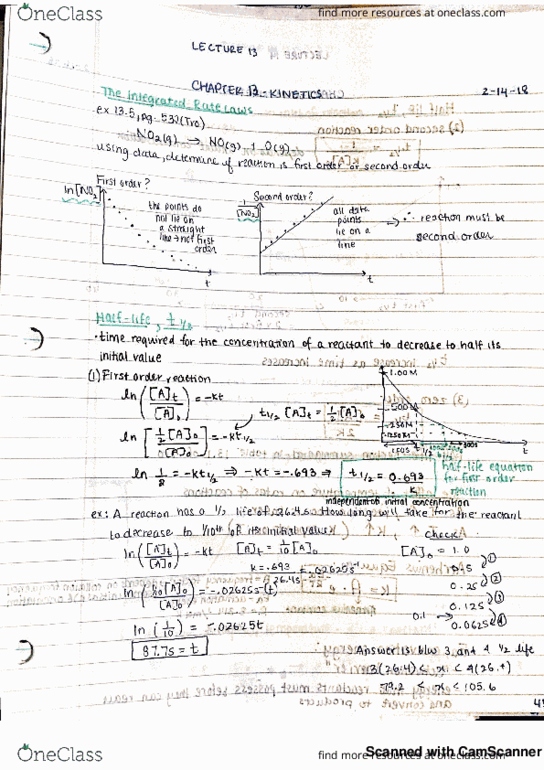 OneClass
find more resources at oneclass.com
LECTURE 13
CHAPTER 13 - KINETICS
2-14-18
The Integrated Rate Laws
ex 13.5, pg. 532 (Tro)
NO₂(g) → NO(g) + O(g)
using data, determine if reaction is first order or second order
First order?
ln[NO₂]
the points do
not lie on
a straight
line → not first
order
t
Second order?
1/[NO₂]
all data
points
lie on a
line
t
→ ∴ reaction must be
second order
Half-life, t 1/2
• time required for the concentration of a reactant to decrease to half its
initial value
(1) First order reaction
ln([A]t/[A]₀) = -kt
t 1/2 [A]t = 1/2[A]₀
ln[1/2[A]₀/[A]₀] = -kt 1/2
-kt 1/2 ⇒ -kt = -.693 ⇒ t 1/2 = 0.693/k
half-life equation
for first order
reaction
independent of initial concentration
1.00M
ex: A reaction has a 1/2 life of 26.4s. How long will take for the reactant
to decrease to 1/10th of its initial value?
ln([A]t/[A]₀) = -kt
[A]t = 1/10[A]₀
k = .693/26.4s = .02625
ln(1/10[A]₀/[A]₀) = -.02625(t)
ln(1/10) = -.02625t
87.7s = t
check:
[A]₀ = 1.0
0.5
0.25
0.125
0.1 →
0.0625
Answer is b/w 3 and 4 1/2 life
3(26.4) < x < 4(26.4)
79.2 < x < 105.6
OneClass
find more resources at oneclass.com
Scanned with CamScanner